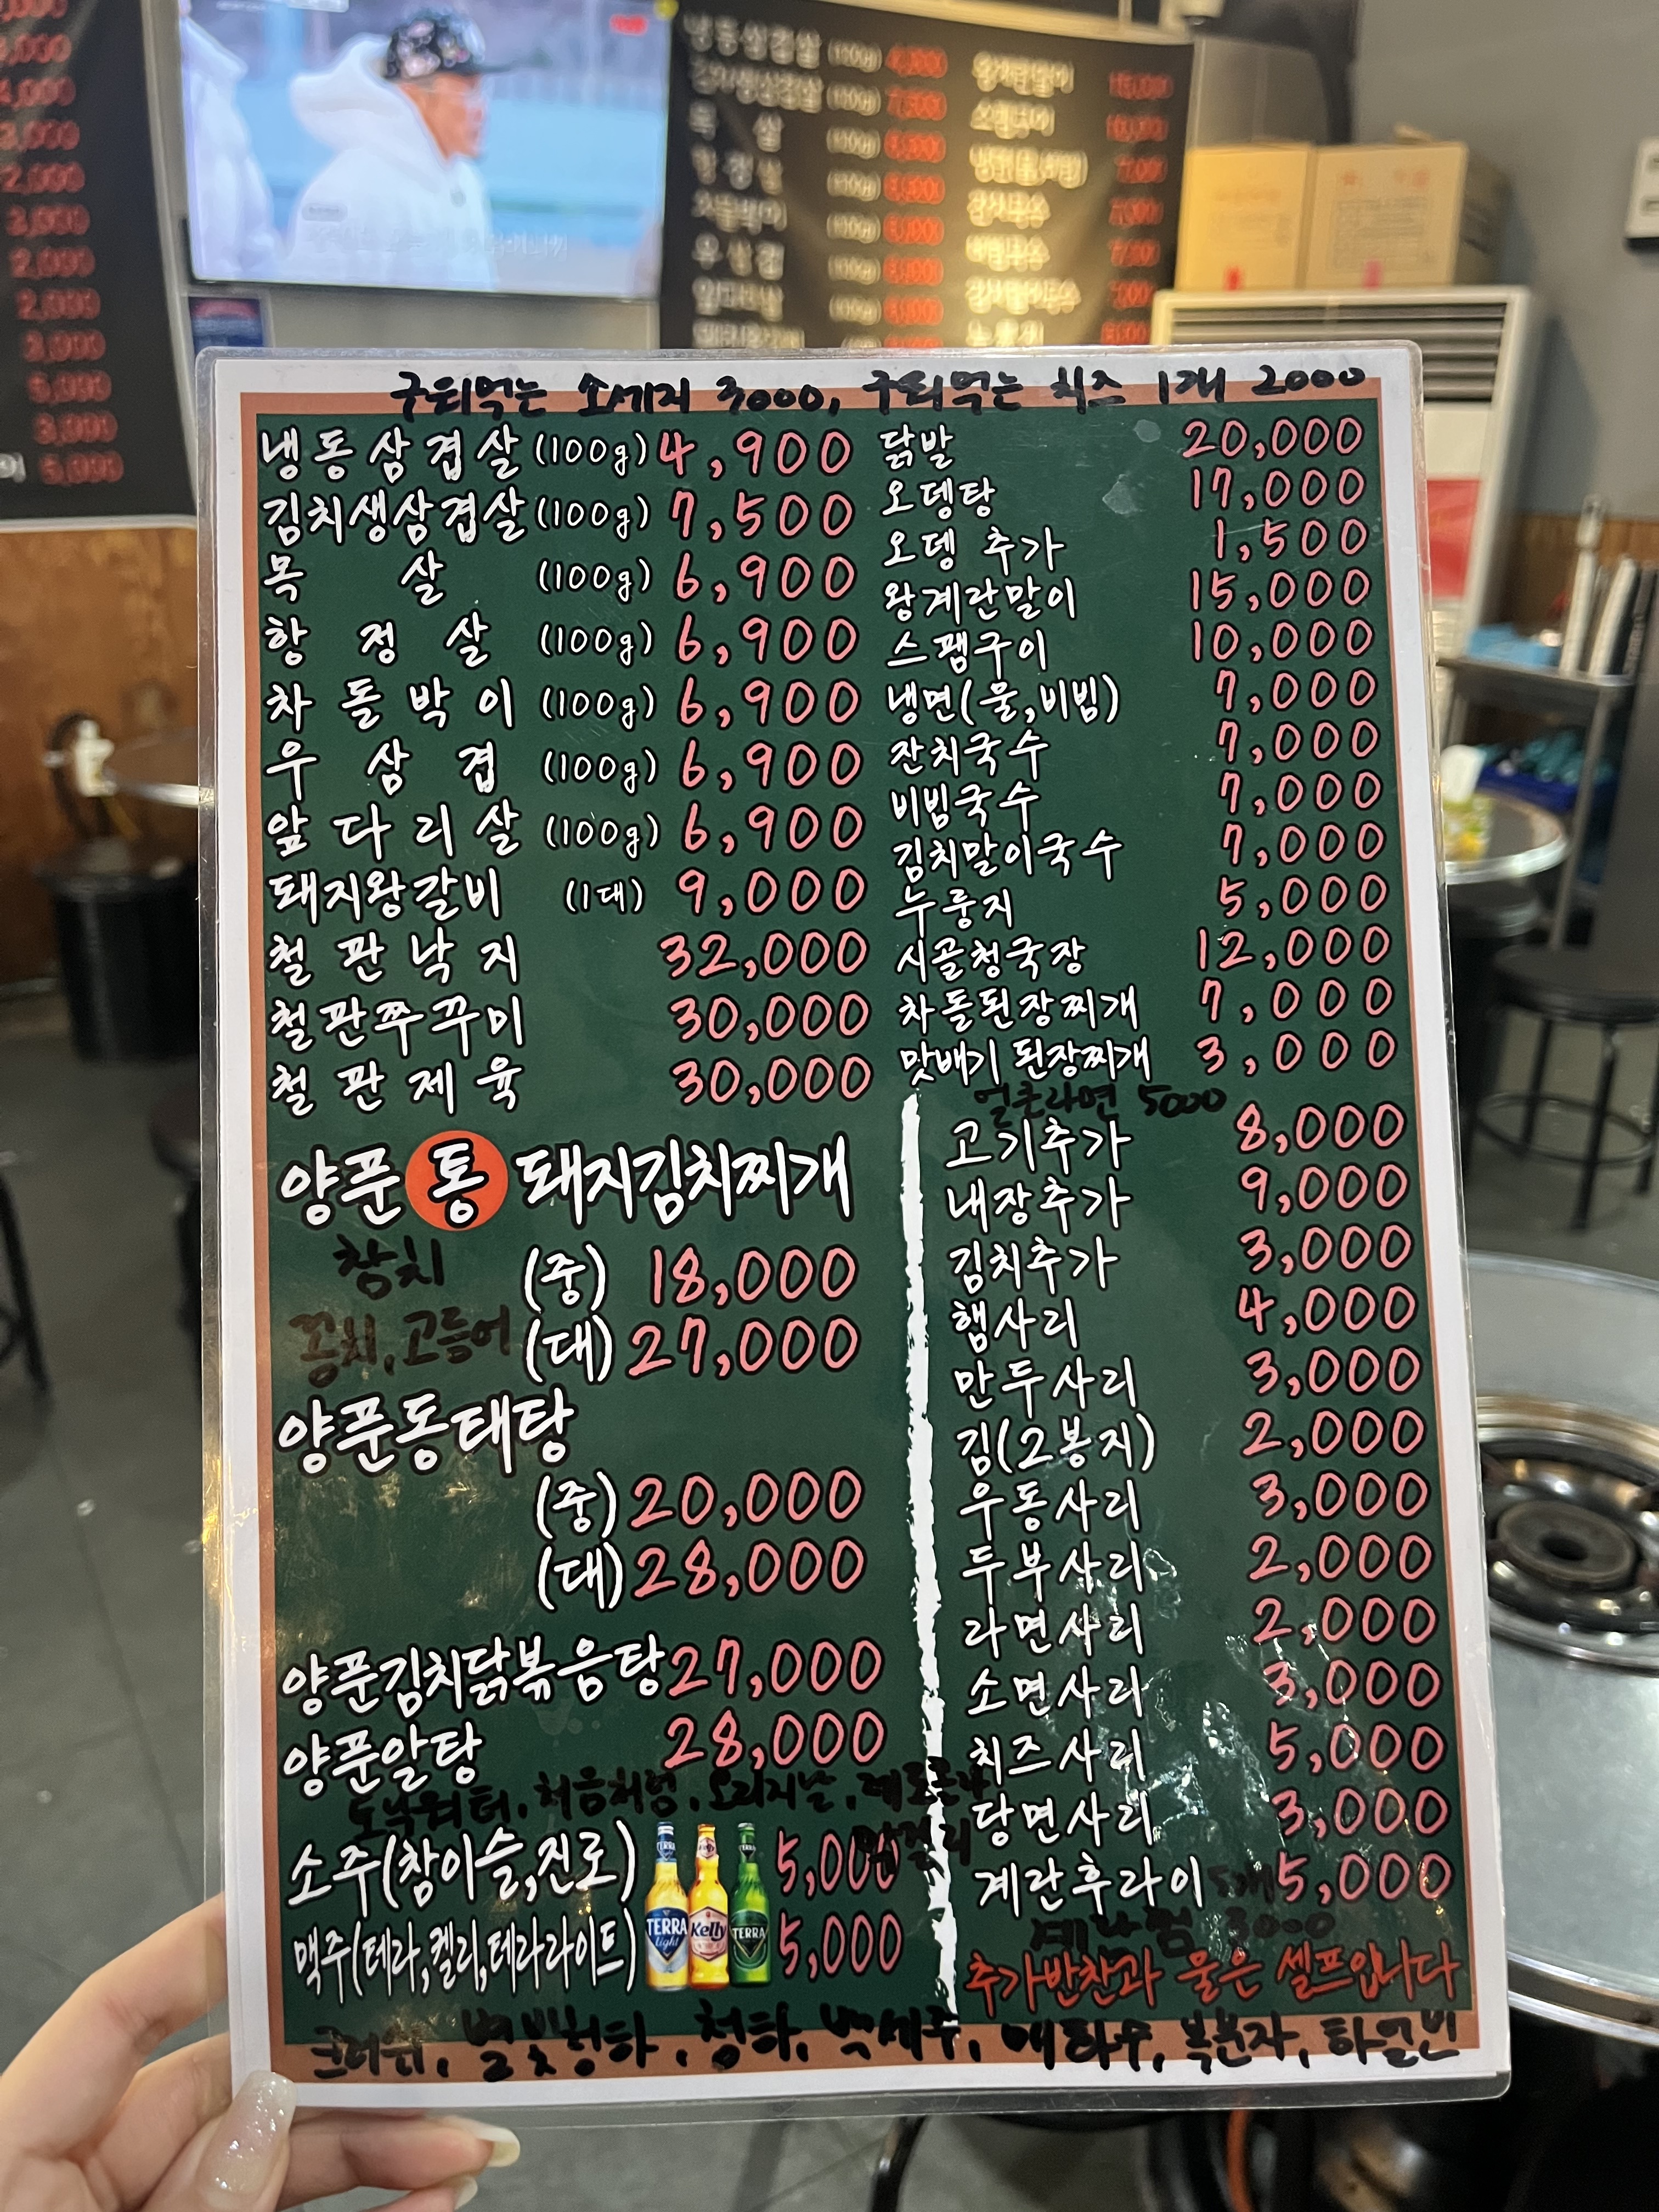 구워먹는 소세지 3000, 구워먹는 치즈 1개 2000
냉동삼겹살 (100g) 4,900
김치생삼겹살 (100g) 7,500
목살 (100g) 6,900
항정살 (100g) 6,900
차돌박이 (100g) 6,900
우삼겹 (100g) 6,900
앞다리살 (100g) 6,900
돼지왕갈비 (1대) 9,000
철판낙지 32,000
철판쭈꾸미 30,000
철판제육 30,000
양푼통돼지김치찌개
참치 (중) 18,000
꽁치, 고등어 (대) 27,000
양푼동태탕
(중) 20,000
(대) 28,000
양푼김치닭볶음탕 27,000
양푼알탕 28,000
처음처럼, 오리지날,
소주(참이슬,진로) 5,000
맥주(테라,켈리,테라라이트) 5,000
TERRA Light
Kelly
TERRA
닭발 20,000
오뎅탕 17,000
오뎅 추가 1,500
왕계란말이 15,000
스팸구이 10,000
냉면(물,비빔) 7,000
잔치국수 7,000
비빔국수 7,000
김치말이국수 7,000
누룽지 5,000
시골청국장 12,000
차돌된장찌개 7,000
맛배기 된장찌개 3,000
얼큰라면 5000
고기추가 8,000
내장추가 9,000
김치추가 3,000
햄사리 4,000
만두사리 3,000
김(2봉지) 2,000
우동사리 3,000
두부사리 2,000
라면사리 2,000
소면사리 3,000
치즈사리 5,000
당면사리 3,000
계란후라이 5개 5,000
계란찜 3000
추가반찬과 물은 셀프입니다
크러쉬, 별빛청하, 청하, 백세주, 매화수, 복분자, 하얼빈